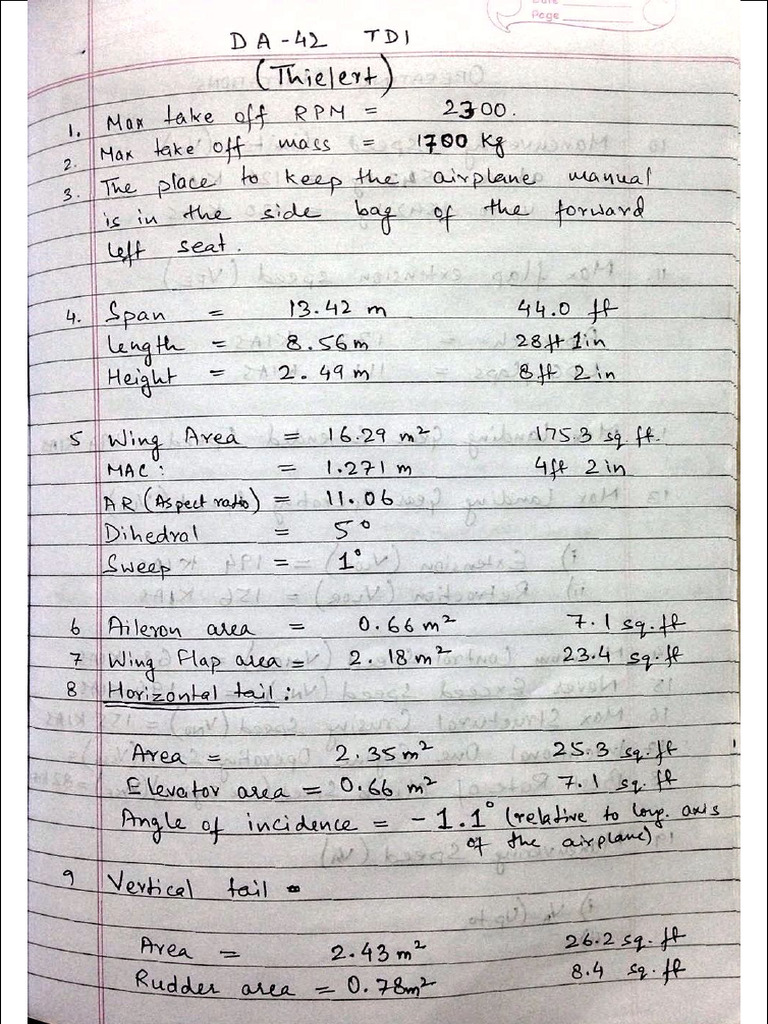 Page
DA-42 TDI
(Thielert)
1. Max take off RPM = 2300.
2. Max take off mass = 1700 Kg
3. The place to keep the airplane manual
is in the side bag of the forward
left seat.
4. Span = 13.42 m 44.0 ft
Length = 8.56 m 28ft 1in
Height = 2.49 m 8ft 2in
5 Wing Area = 16.29 m² 175.3 sq. ft.
MAC: = 1.271 m 4ft 2in
AR (Aspect ratio) = 11.06
Dihedral = 5°
Sweep = 1°
6 Aileron area = 0.66 m² 7.1 sq. ft
7 Wing Flap area = 2.18 m² 23.4 sq. ft
8 Horizontal tail:
Area = 2.35 m² 25.3 sq. ft
Elevator area = 0.66 m² 7.1 sq. ft
Angle of incidence = -1.1° (relative to long. axis
of the airplane)
9 Vertical tail
Area = 2.43 m² 26.2 sq. ft
Rudder area = 0.78m² 8.4 sq. ft